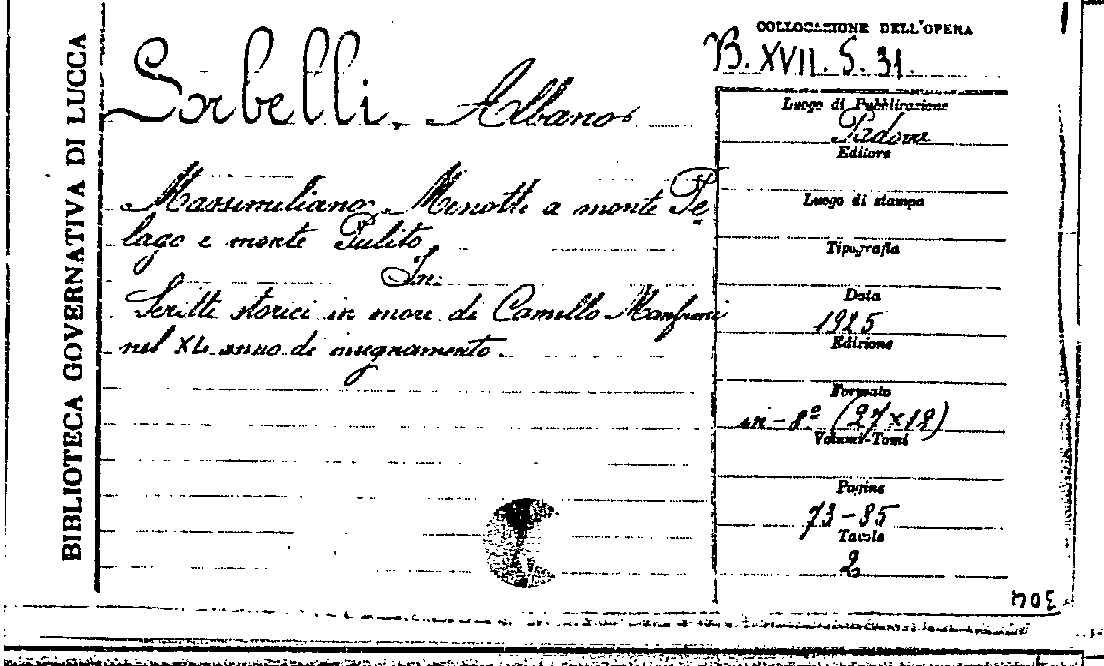 BIBLIOTECA GOVERNATIVA DI LUCCA
COLLOCAZIONE DELL'OPERA
B. XVII. S. 31.
Sorbelli, Albano
Massimiliano Menotti a monte Pe
lago e monte Pulito
In:
Scritti storici in more di Camillo Manfroni
nel XL anno di insegnamento.
Luogo di Pubblicazione
Padova
Editore
Luogo di stampa
Tipografia
Data
1925
Edizione
Formato
in-8º (27x18)
Volumi-Tomi
Pagine
73-85
Tavole
2